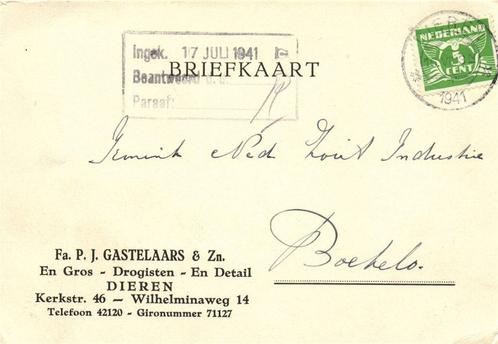 Ingek. 17 JULI 1941
Beantwoord d.d.
Paraaf:
BRIEFKAART
NEDERLAND
3
CENT
1941
Ned Zout Industrie
Boekelo.
Fa. P. J. GASTELAARS & Zn.
En Gros - Drogisten - En Detail
DIEREN
Kerkstr. 46 — Wilhelminaweg 14
Telefoon 42120 - Gironummer 71127